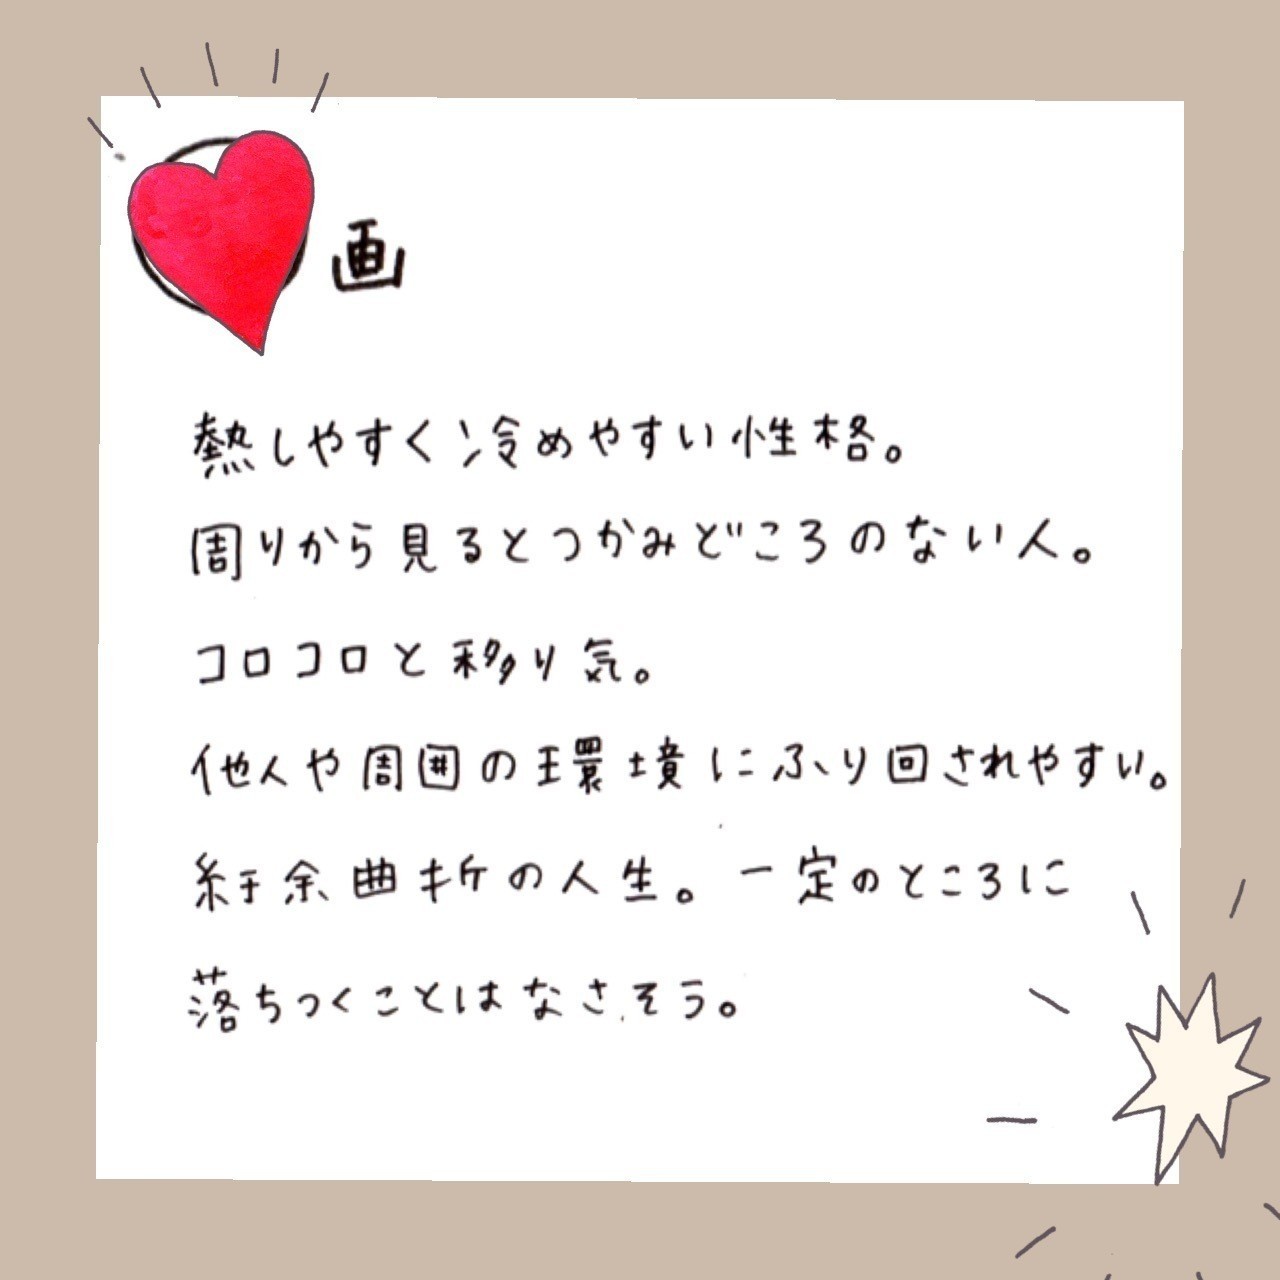 画
熱しやすく冷めやすい性格。
周りから見るとつかみどころのない人。
コロコロと移り気。
他人や周囲の環境にふり回されやすい。
紆余曲折の人生。一定のところに
落ちつくことはなさそう。